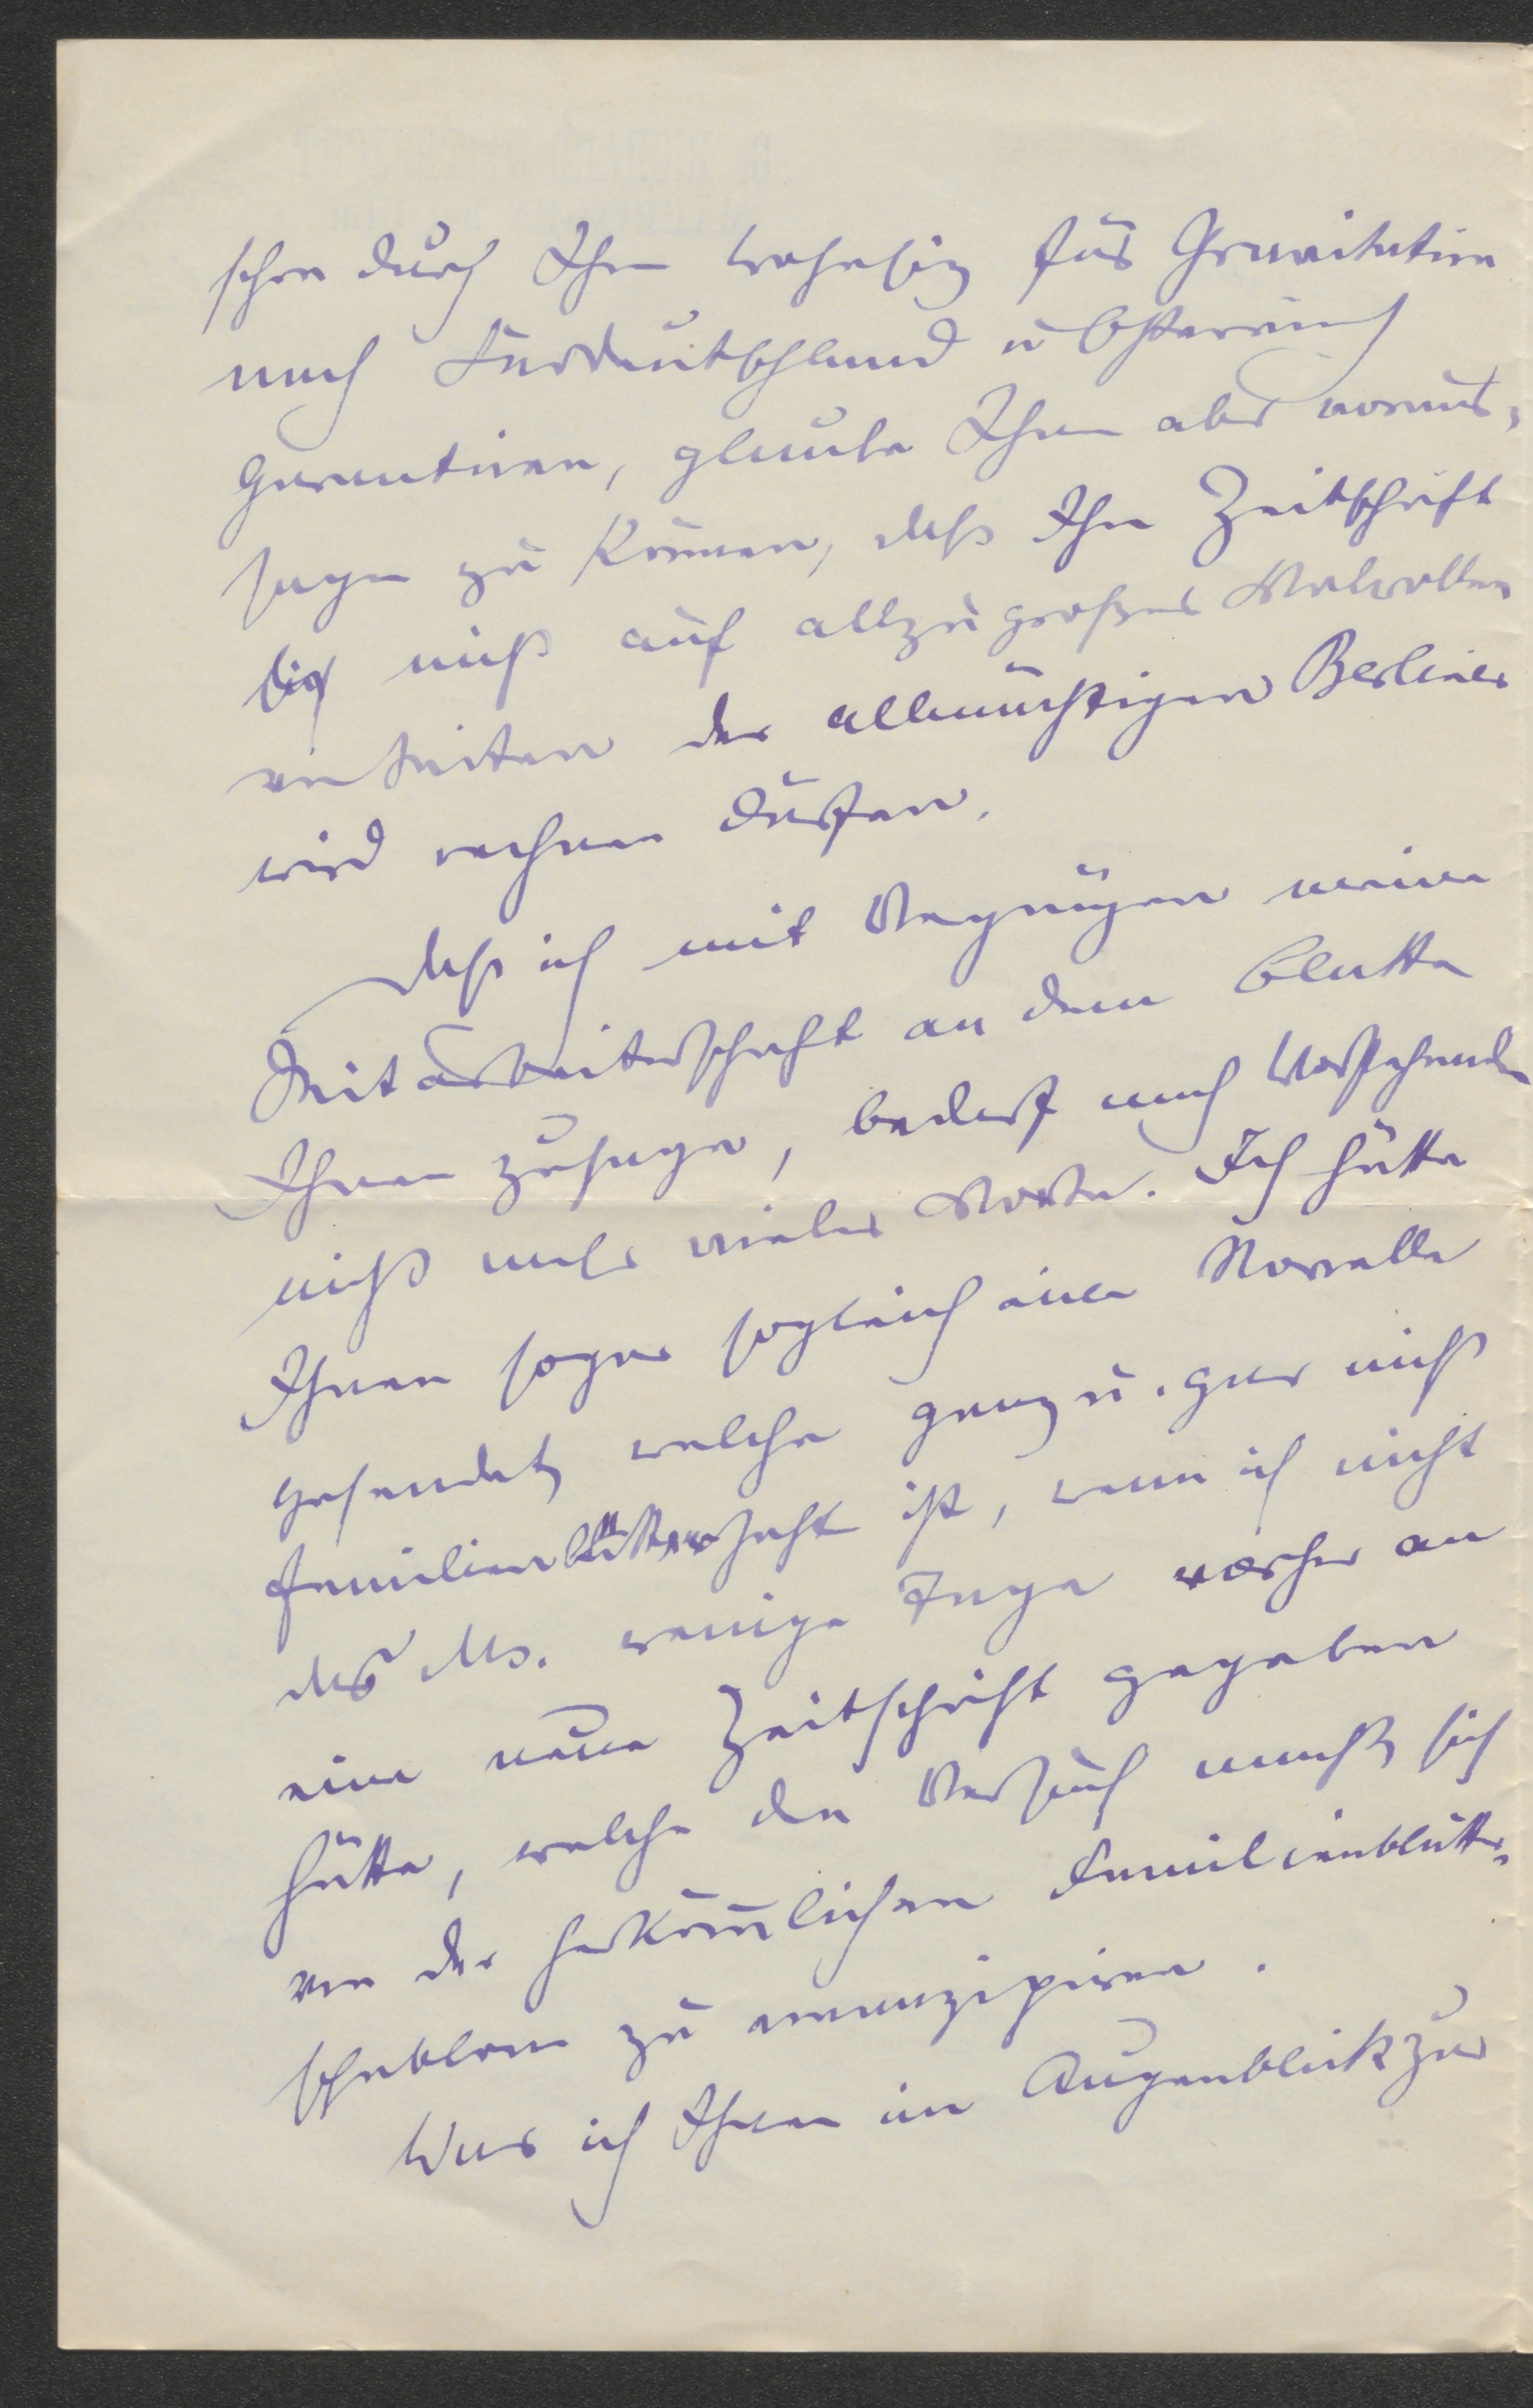 schon durch Ihren Wohnsitz für Gravitation
nach Süddeutschland u Österreich
garantiren, glaube Ihnen aber voraus-
sagen zu können, daß Ihre Zeitschrift
sich nicht auf allzu großes Wolwollen
von Seiten der allmächtigen Berliner
wird rechnen dürfen.
Daß ich mit Vergnügen meine
Mitarbeiterschaft an dem Blatte
Ihnen zusage, bedarf nach Vorstehende
nicht mehr vieler Worte. Ich hätte
Ihnen sogar sogleich eine Novelle
gesendet, welche ganz u. gar nicht
familienblätterhaft ist, wenn ich nicht
das Ms. wenige Tage vorher an
eine neue Zeitschrift gegeben
hätte, welche den Versuch macht, sich
von der herkömlichen Familienblätter-
schablone zu emanzipiren.
Was ich Ihnen im Augenblick zur